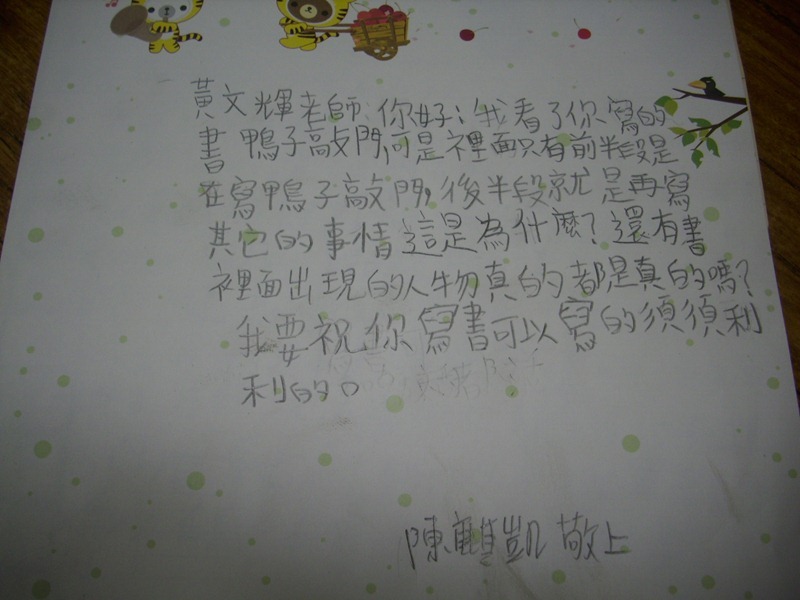 黃文輝老師:你好;我看了你寫的
書鴨子敲門,可是裡面只有前半段是
在寫鴨子敲門,後半段就是再寫
其它的事情這是為什麼?還有書
裡面出現的人物真的都是真的嗎?
我要祝你寫書可以寫的須須利
利的。
陳雙凱 敬上